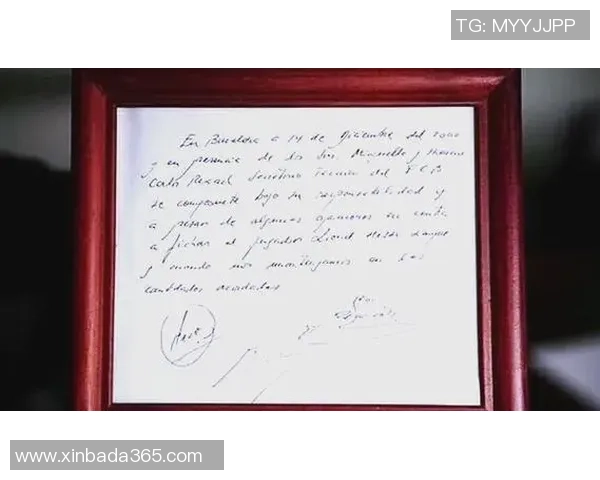 TG: MYYJJPP
En Barcelona a 14 de Diciembre del 2000
y en presencia de los Sres. Minguella y Horacio
Carlos Rexach Secretario Técnico del F.C.B
se compromete bajo su responsabilidad y
a pesar de algunas opiniones en contra
a fichar al jugador Lionel Messi siempre
y cuando nos mantengamos en las
cantidades acordadas
www.xinbada365.com